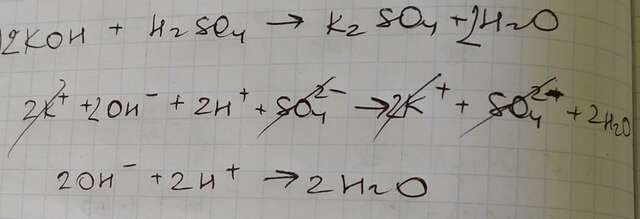 2KOH + H₂SO₄ → K₂SO₄ + 2H₂O
2K⁺ + 2OH⁻ + 2H⁺ + SO₄²⁻ → 2K⁺ + SO₄²⁻ + 2H₂O
2OH⁻ + 2H⁺ → 2H₂O